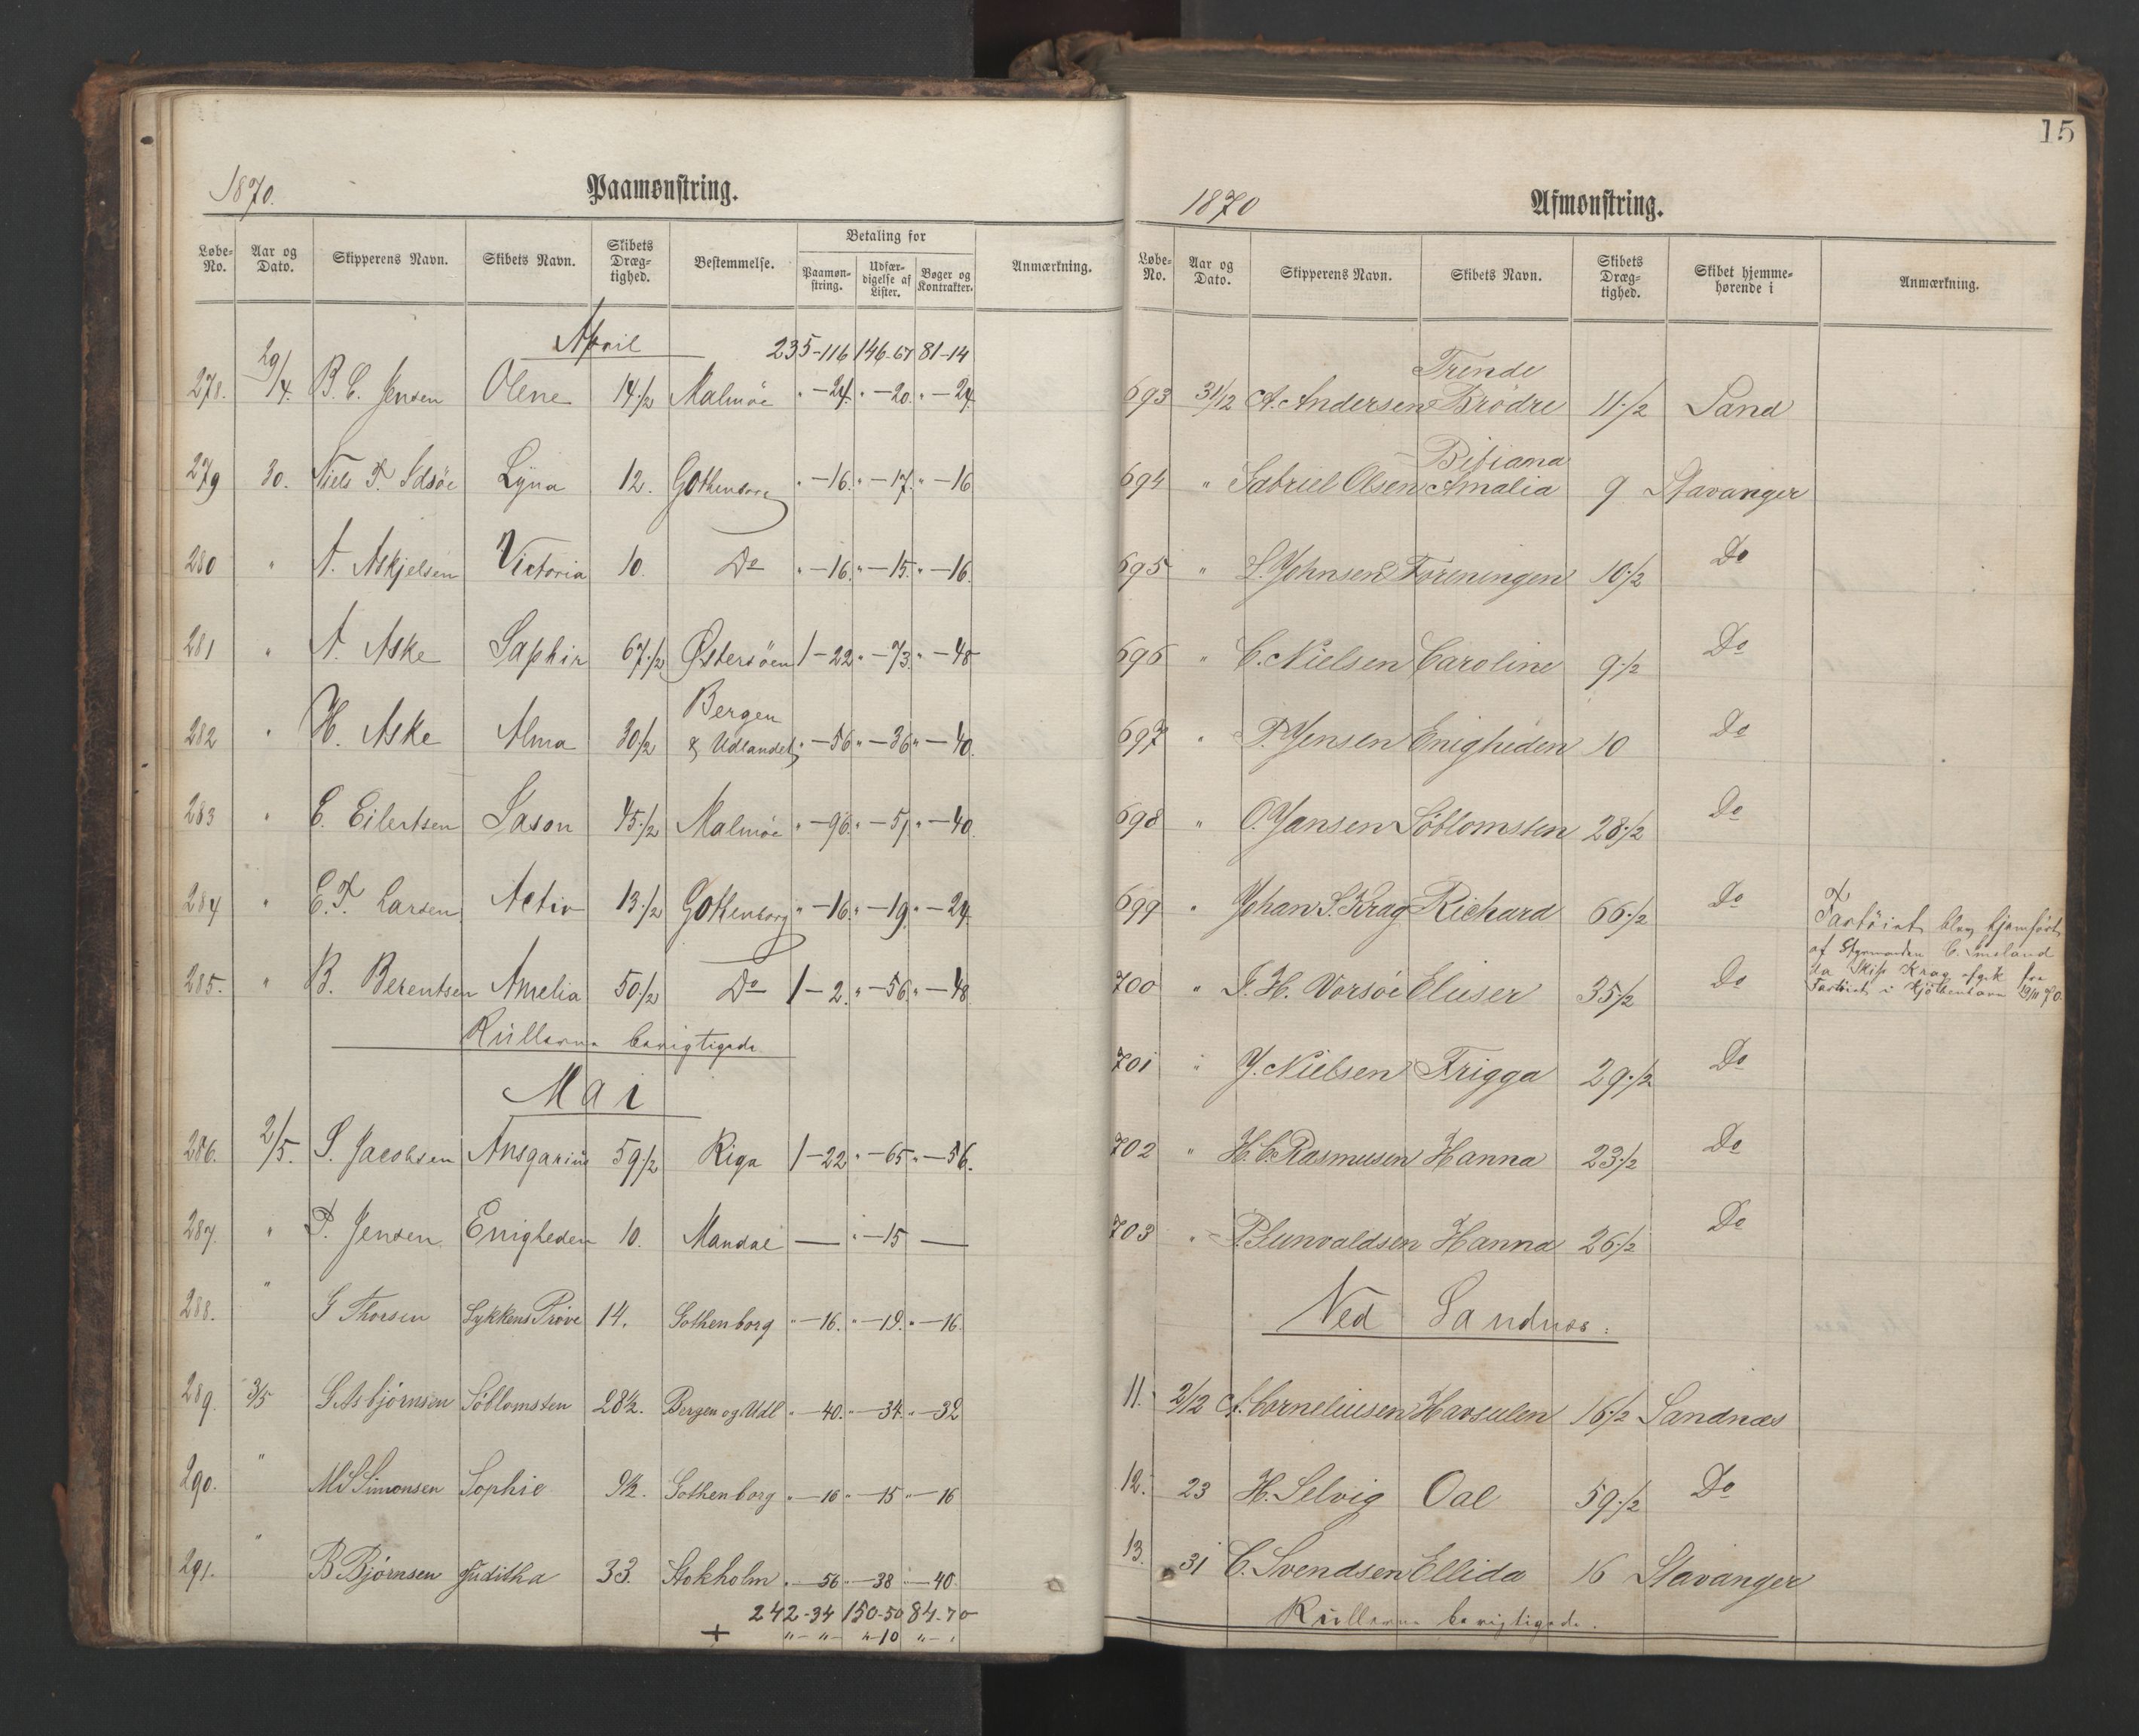 1870.
Paamønstring.
Løbe-No. Aar og Dato. Skipperens Navn. Skibets Navn. Skibets Dræg-tighed. Bestemmelse. Betaling for Paamøn-string. Udfær-digelse af Lister. Bøger og Kontrakter. Anmærkning.
April 235-116 146-67 81-14
278. 29/4. B. C. Jensen Olene 14 1/2 Malmöe " - 24. " - 20. " - 24.
279 30. Niels T. Idsöe Lyna 12. Gothenborg " - 16. " - 17. " - 16
280 " A. Askjelsen Victoria 10. Do " - 16. " - 15. " - 16.
281 " A. Aske Saphir 67 1/2 Østersöen 1 - 22 " - 73. " - 48
282 " H. Aske Alma 30 1/2 Bergen & Udlandet " - 56 " - 36 " - 40.
283 " E. Eilertsen Jason 45 1/2 Malmöe " - 96. " - 51 " - 40.
284 " E. T. Larsen Activ 13 1/2 Gothenborg " - 16. " - 19. " - 24.
285. " B. Berentsen Amelia 50 1/2 Do 1 - 2. " - 56. " - 48
Rullerne berigtigede.
Mai
286. 2/5. S. Jacobsen Ansgarius 59 1/2 Riga 1 - 22 " - 65 " - 56.
287. " P. Jensen Enigheden 10. Mandal — " - 15 —
288. " G Thorsen Lykkens Pröve 14. Gothenborg " - 16. " - 19. " - 16.
289. 3/5 G Asbjörnsen Söblomsten 28 1/2. Bergen og Udl " - 40. " - 34. " - 32
290. " M S Simonsen Sophie 9 1/2. Gothenborg " - 16 " - 15 " - 16
291. " B Björnsen Juditha 33. Stokholm " - 56 " - 38 " - 40.
242-34 150-50 84-70
+ " - " - " - 10 " - "
15
1870
Afmønstring.
Løbe-No. Aar og Dato. Skipperens Navn. Skibets Navn. Skibets Dræg-tighed. Skibet hjemme-hørende i Anmærkning.
693 31/12 A. Andersen Trende Brödre 11 1/2 Sand
694 " Gabriel Olsen Bibiana Amalia 9 Stavanger
695 " L. Johnsen Foreningen 10 1/2 Do
696 " C. Nielsen Caroline 9 1/2 Do
697 " P. Jensen Enigheden 10 Do
698 " O. Jansen Söblomsten 28 1/2 Do
699 " Johan S. Krag Richard 66 1/2 Do
Fartöiet blev hjemfört
af Styrmanden C. Smeland
da Skip Krag afgik fra
Fartöiet i Kjöbenhavn 19/11 70.
700 " J. H. Vorsöe Elieser 35 1/2 Do
701 " J. Nielsen Frigga 29 1/2 Do
702 " H. C. Rasmusen Hanna 23 1/2 Do
703 " P. Gunvaldsen Hanna 26 1/2 Do
Ved Sandnæs:
11. 2/12 A. Corneliusen Havsulen 16 1/2 Sandnæs
12. 23 H. Selvig Oal 59 1/2 Do
13. 31 C. Svendsen Ellida 16 Stavanger
Rullerne berigtigede.